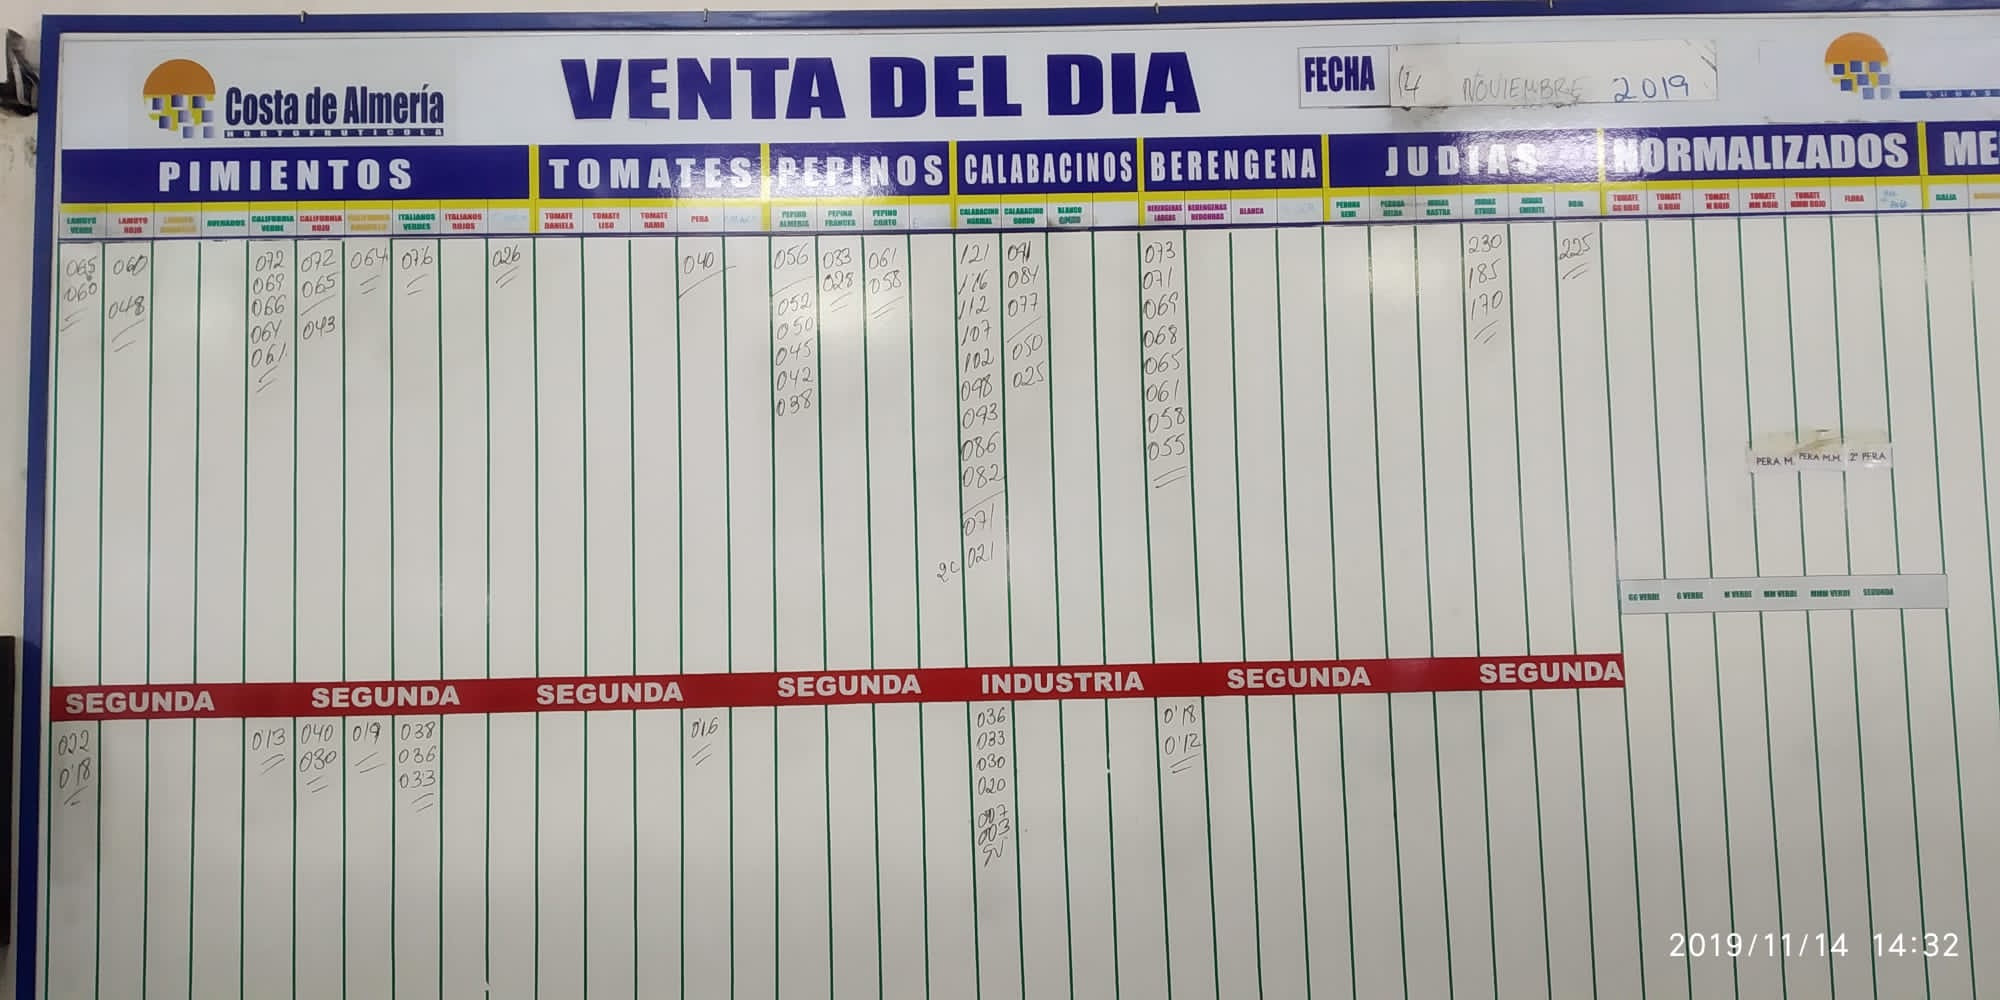 Costa de Almería
HORTOFRUTICOLA
VENTA DEL DIA
FECHA 14 NOVIEMBRE 2019
PIMIENTOS TOMATES PEPINOS CALABACINOS BERENGENA JUDIAS NORMALIZADOS ME
LAMUYO VERDE
065
060
LAMUYO ROJO
060
048
ASURADOS
CALIFORNIA VERDE
072
069
066
064
061
CALIFORNIA ROJO
072
065
043
CALIFORNIA
064
ITALIANOS VERDES
076
ITALIANOS ROJOS
026
TOMATE DANIELA
TOMATE LISO
TOMATE RAMO
PERA
040
PEPINO ALMERIA
056
052
050
045
042
038
PEPINO FRANCES
033
028
PEPINO CORTO
061
058
CALABACINO NORMAL
121
116
112
107
102
098
093
086
082
071
2C 021
CALABACINO GORDO
091
084
077
050
025
BLANCO GORDO
BERENGENAS LARGAS
073
071
069
068
065
061
058
055
BERENGENAS REDONDAS
BLANCA
PERONA SEMI
PERONA HELDA
JUDIAS RASTRA
JUDIAS STRIKE
230
185
170
JUDIAS EMERITE
ROJA
225
TOMATE GG ROJO
TOMATE G ROJO
TOMATE M ROJO
TOMATE MM ROJO
TOMATE MMM ROJO
FLORA
GALIA
PERA M. PERA M.M. 2ª PERA
GG VERDE G VERDE M VERDE MM VERDE MMM VERDE SEGUNDA
SEGUNDA SEGUNDA SEGUNDA SEGUNDA INDUSTRIA SEGUNDA SEGUNDA
022
0'18
0'13
040
030
019
038
036
033
0'16
036
033
030
020
007
003
SV
0'18
0'12
2019/11/14 14:32